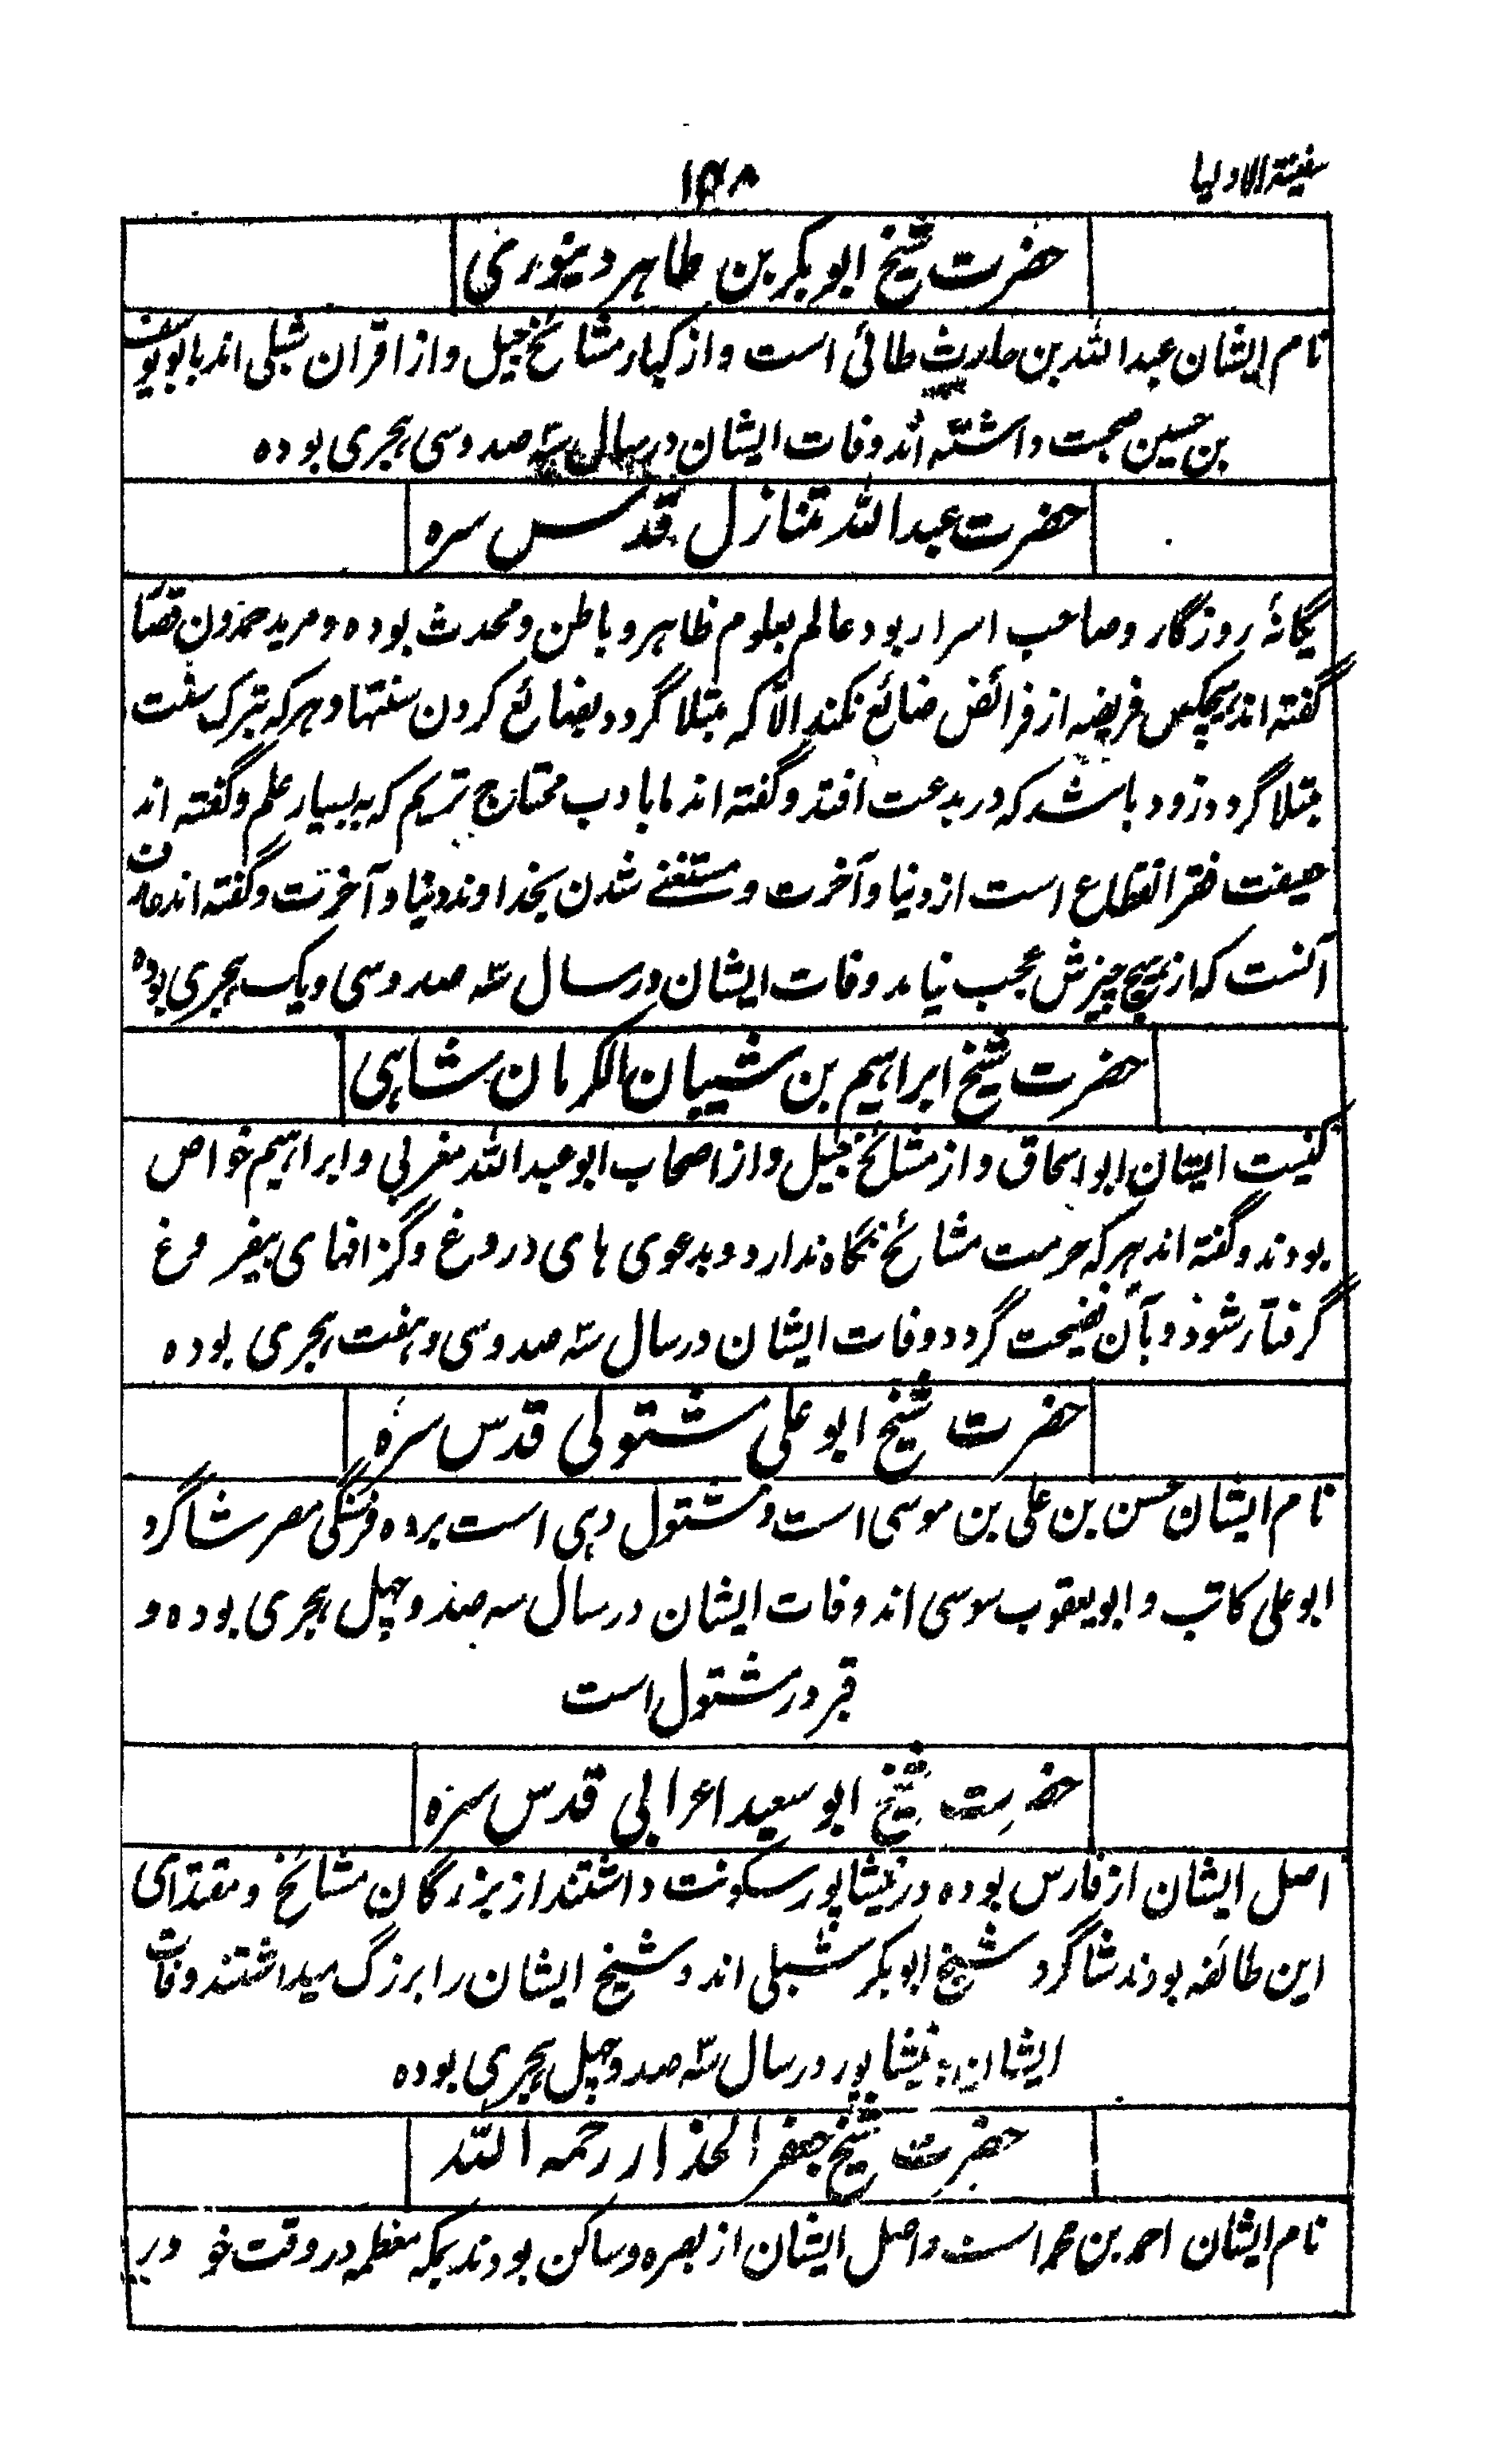 سفینۃ الاولیا
۱۴۸
حضرت شیخ ابوبکر بن طاہر دینوری
نام ایشان عبداللہ بن حارث طائی است و از کبار مشائخ جبل و از اقران شبلی اند با ابویوسف
بن حسین صحبت داشتہ اند وفات ایشان در سال سہ صد و سی ہجری بودہ
حضرت عبداللہ منازل قدس سرہ
یگانۂ روزگار و صاحب اسرار بود عالم بعلوم ظاہر و باطن و محدث بودہ و مرید حمدون قصار
گفتہ اند ہیچکس فریضہ از فرائض ضائع نکند الّا کہ مبتلا گردد بضائع کردن سنتہا و ہر کہ بترک سنت
مبتلا گردد زود باشد کہ در بدعت افتد و گفتہ اند ما بادب محتاج تریم کہ بہ بسیار علم و گفتہ اند
حقیقت فقر انقطاع است از دنیا و آخرت و مستغنے شدن بخداوند دنیا و آخرت و گفتہ اند عارف
آنست کہ از ہیچ چیزش عجب نیاید وفات ایشان در سال سہ صد و سی و یک ہجری بودہ
حضرت شیخ ابراہیم بن شیبان الکرمان شاہی
کنیت ایشان ابواسحاق و از مشائخ جبل و از اصحاب ابوعبداللہ مغربی و ابراہیم خواص
بودند و گفتہ اند ہر کہ حرمت مشائخ نگاہ ندارد و بدعوی ہای دروغ و گزافہای بیفروغ
گرفتار شود و بآن فضیحت گردد وفات ایشان در سال سہ صد و سی و ہفت ہجری بودہ
حضرت شیخ ابو علی مشتولی قدس سرہ
نام ایشان حسن بن علی بن موسی است و مشتول دہی است بردہ فرسنگی مصر شاگرد
ابو علی کاتب و ابو یعقوب سوسی اند وفات ایشان در سال سہ صد و چہل ہجری بودہ و
قبر در مشتول است
حضرت شیخ ابو سعید اعرابی قدس سرہ
اصل ایشان از فارس بودہ در نیشاپور سکونت داشتند از بزرگان مشائخ و مقتدای
این طائفہ بودند شاگرد شیخ ابوبکر شبلی اند و شیخ ایشان را بزرگ میداشتند وفات
ایشان بہ نیشاپور در سال سہ صد و چہل ہجری بودہ
حضرت شیخ جعفر الحذار رحمہ اللہ
نام ایشان احمد بن محمد است و اصل ایشان از بصرہ و ساکن بودند بمکہ معظمہ در وقت خو در